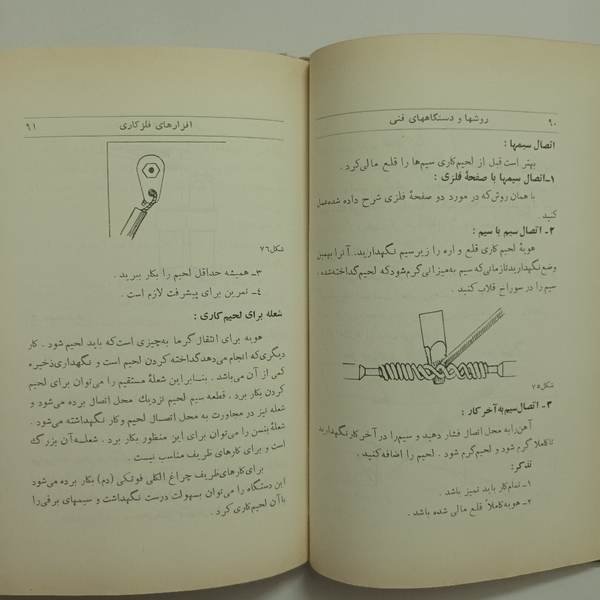 ۹۰ روشها و دستگاههای فنی
اتصال سیمها :
بهتر است قبل از لحیم‌کاری سیم‌ها را قلع مالی کرد .
۱ـ اتصال سیمها با صفحهٔ فلزی :
با همان روش که در مورد دو صفحهٔ فلزی شرح داده شده عمل
کنید .
۲ـ اتصال سیم با سیم :
هویهٔ لحیم کاری قلع و اره را زیر سیم نگهدارید، آنرا بهمین
وضع نگهدارید تا زمانی که سیم به میزانی گرم شود که لحیم گداخته شده ،
سیم را در سوراخ قلاب کنید .
شکل ۷۵
۳ـ اتصال سیم به آخر کار :
آهن را به محل اتصال فشار دهید و سیم را در آخر کار نگهدارید
تا کاملا گرم شود و لحیم گرم شود . لحیم را اضافه کنید .
تذکر :
۱ـ تمام کار باید تمیز باشد .
۲ـ هویه کاملاً قلع مالی شده باشد .
افزارهای فلزکاری ۹۱
شکل ۷۶
۳ـ همیشه حداقل لحیم را بکار ببرید .
۴ـ تمرین برای پیشرفت لازم است .
شعله برای لحیم کاری :
هویه برای انتقال گرما به چیزی است که باید لحیم شود . کار
دیگری که انجام می‌دهد گداخته کردن لحیم است و نگهداری ذخیره
کمی از آن می‌باشد . بنابراین شعلهٔ مستقیم را می‌توان برای لحیم
کردن بکار برد . قطعه سیم لحیم نزدیك محل اتصال برده می‌شود و
شعله نیز در مجاورت به محل اتصال لحیم وکار نگهداشته می‌شود .
شعلهٔ بنسن را می‌توان برای این منظور بکار برد . شعلهٔ آن بزرگ
است و برای کارهای ظریف مناسب نیست .
برای کارهای ظریف چراغ الکلی فوتکی (دم) بکار برده می‌شود
این دستگاه را می‌توان بسهولت درست نگهداشت و سیمهای برقی را
با آن لحیم کاری کرد .